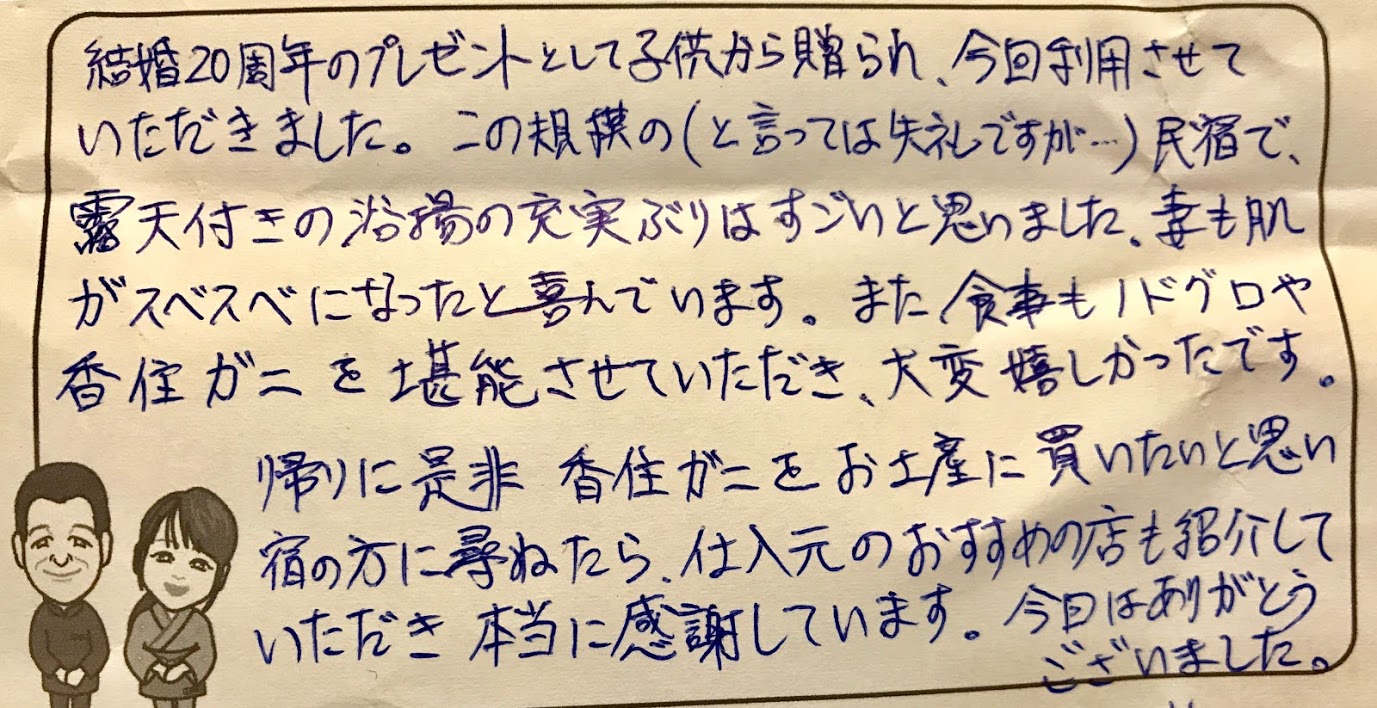 結婚20周年のプレゼントとして子供から贈られ、今回利用させて
いただきました。この規模の(と言っては失礼ですが…)民宿で、
露天付きの浴場の充実ぶりはすごいと思いました、妻も肌
がスベスベになったと喜んでいます。また、食事もノドグロや
香住ガニを堪能させていただき、大変嬉しかったです。
帰りに是非 香住ガニをお土産に買いたいと思い
宿の方に尋ねたら、仕入元のおすすめの店も紹介して
いただき本当に感謝しています。今日はありがとう
ございました。